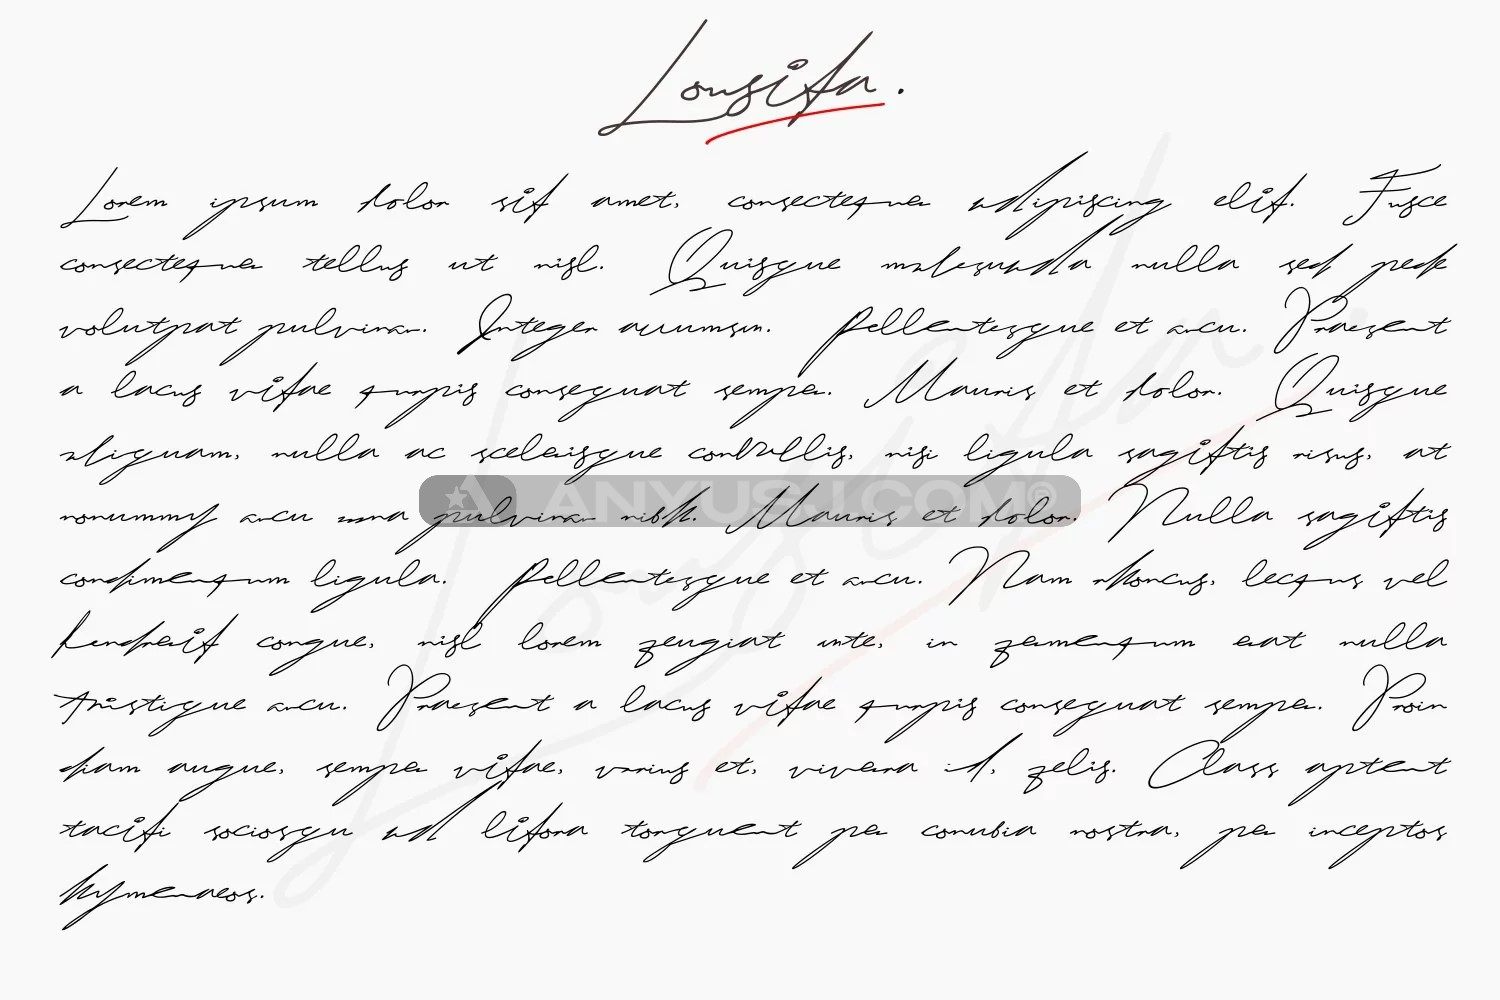 Lousita.
Lorem ipsum dolor sit amet, consectetuer adipiscing elit. Fusce
consectetuer tellus ut nisl. Quisque malesuada nulla sed pede
volutpat pulvinar. Integer accumsan. Pellentesque et arcu. Praesent
a lacus vitae turpis consequat semper. Mauris et dolor. Quisque
aliquam, nulla ac scelerisque convallis, nisi ligula sagittis risus, at
nonummy arcu urna pulvinar nibh. Mauris et dolor. Nulla sagittis
ANYUSJ.COM©
condimentum ligula. Pellentesque et arcu. Nam rhoncus, lectus vel
hendrerit congue, nisl lorem feugiat ante, in fermentum erat nulla
tristique arcu. Praesent a lacus vitae turpis consequat semper. Proin
diam augue, semper vitae, varius et, viverra id, felis. Class aptent
taciti sociosqu ad litora torquent per conubia nostra, per inceptos
hymenaeos.